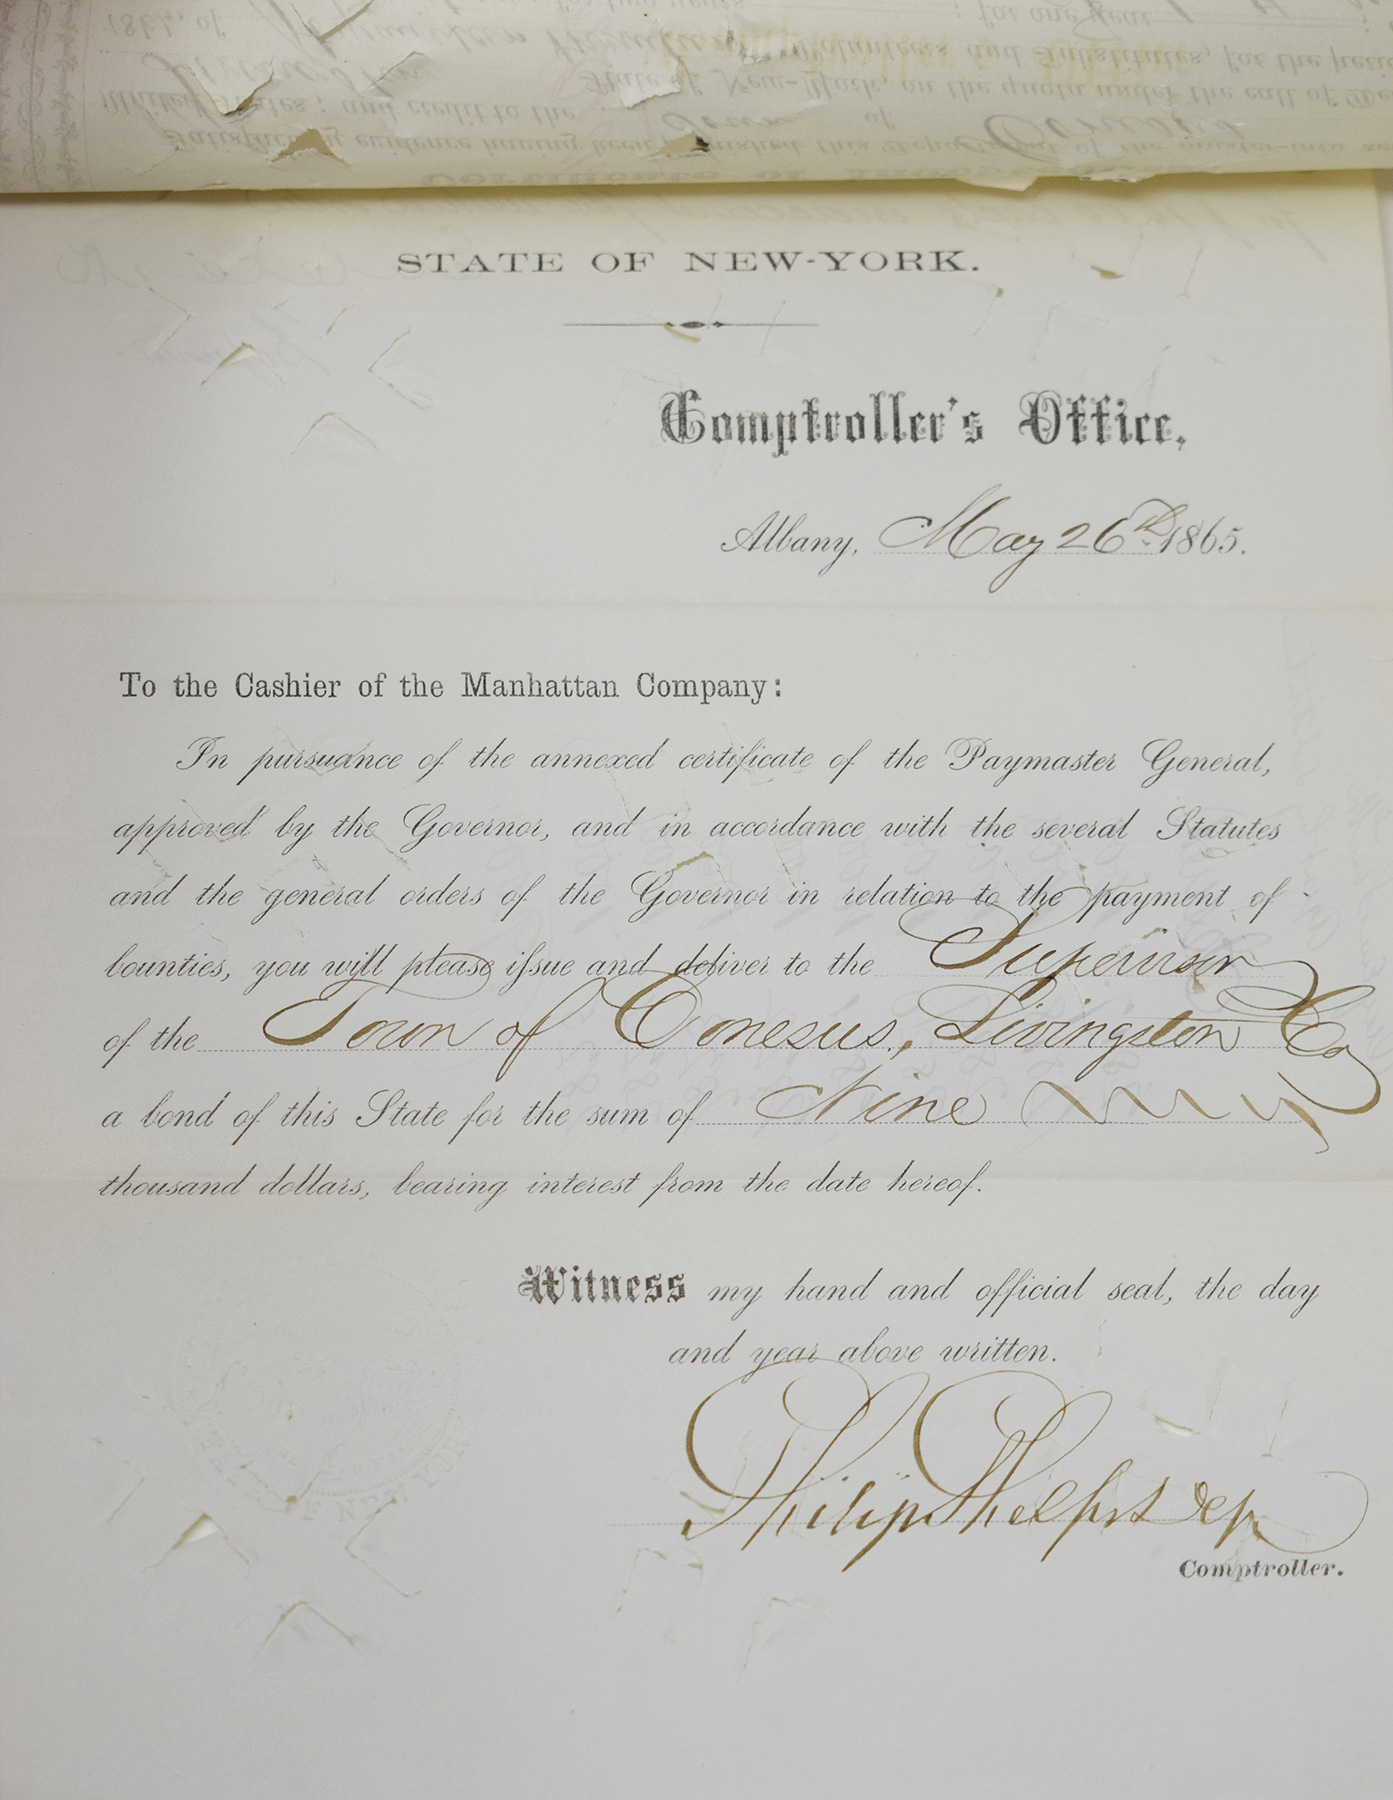 STATE OF NEW-YORK.
Comptroller's Office,
Albany, May 26th 1865.
To the Cashier of the Manhattan Company:
In pursuance of the annexed certificate of the Paymaster General,
approved by the Governor, and in accordance with the several Statutes
and the general orders of the Governor in relation to the payment of
bounties, you will please issue and deliver to the Supervisor
of the Town of Conesus, Livingston Co
a bond of this State for the sum of Nine
thousand dollars, bearing interest from the date hereof.
Witness my hand and official seal, the day
and year above written.
Philip Phelps Dep
Comptroller.